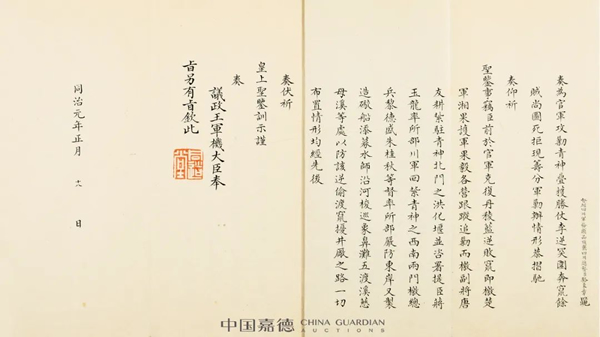 奏為官軍攻勦青神疊獲勝仗李逆突圍奔竄餘
賊尚圖死拒現籌分軍勦辦情形恭摺馳
奏仰祈
聖鑒事竊臣前於官軍克復丹稜藍逆敗竄即檄楚
軍湘果護軍果毅各營跟蹤追勦而檄副將唐
友耕紮駐青神北門之洪化堰並咨署提臣蔣
玉龍率所部川軍回紮青神之西南兩門檄總
兵黎德盛朱桂秋等督率所部嚴防東岸又製
造礮船添募水師沿河梭巡象鼻灘五渡溪慈
母溪等處以防該逆偷渡竄擾井廠之路一切
布置情形均經先後
奏伏祈
皇上聖鑒訓示謹
奏
議政王軍機大臣奉
旨另有旨欽此
同治元年正月 六 日
中国嘉德 CHINA GUARDIAN
AUCTIONS